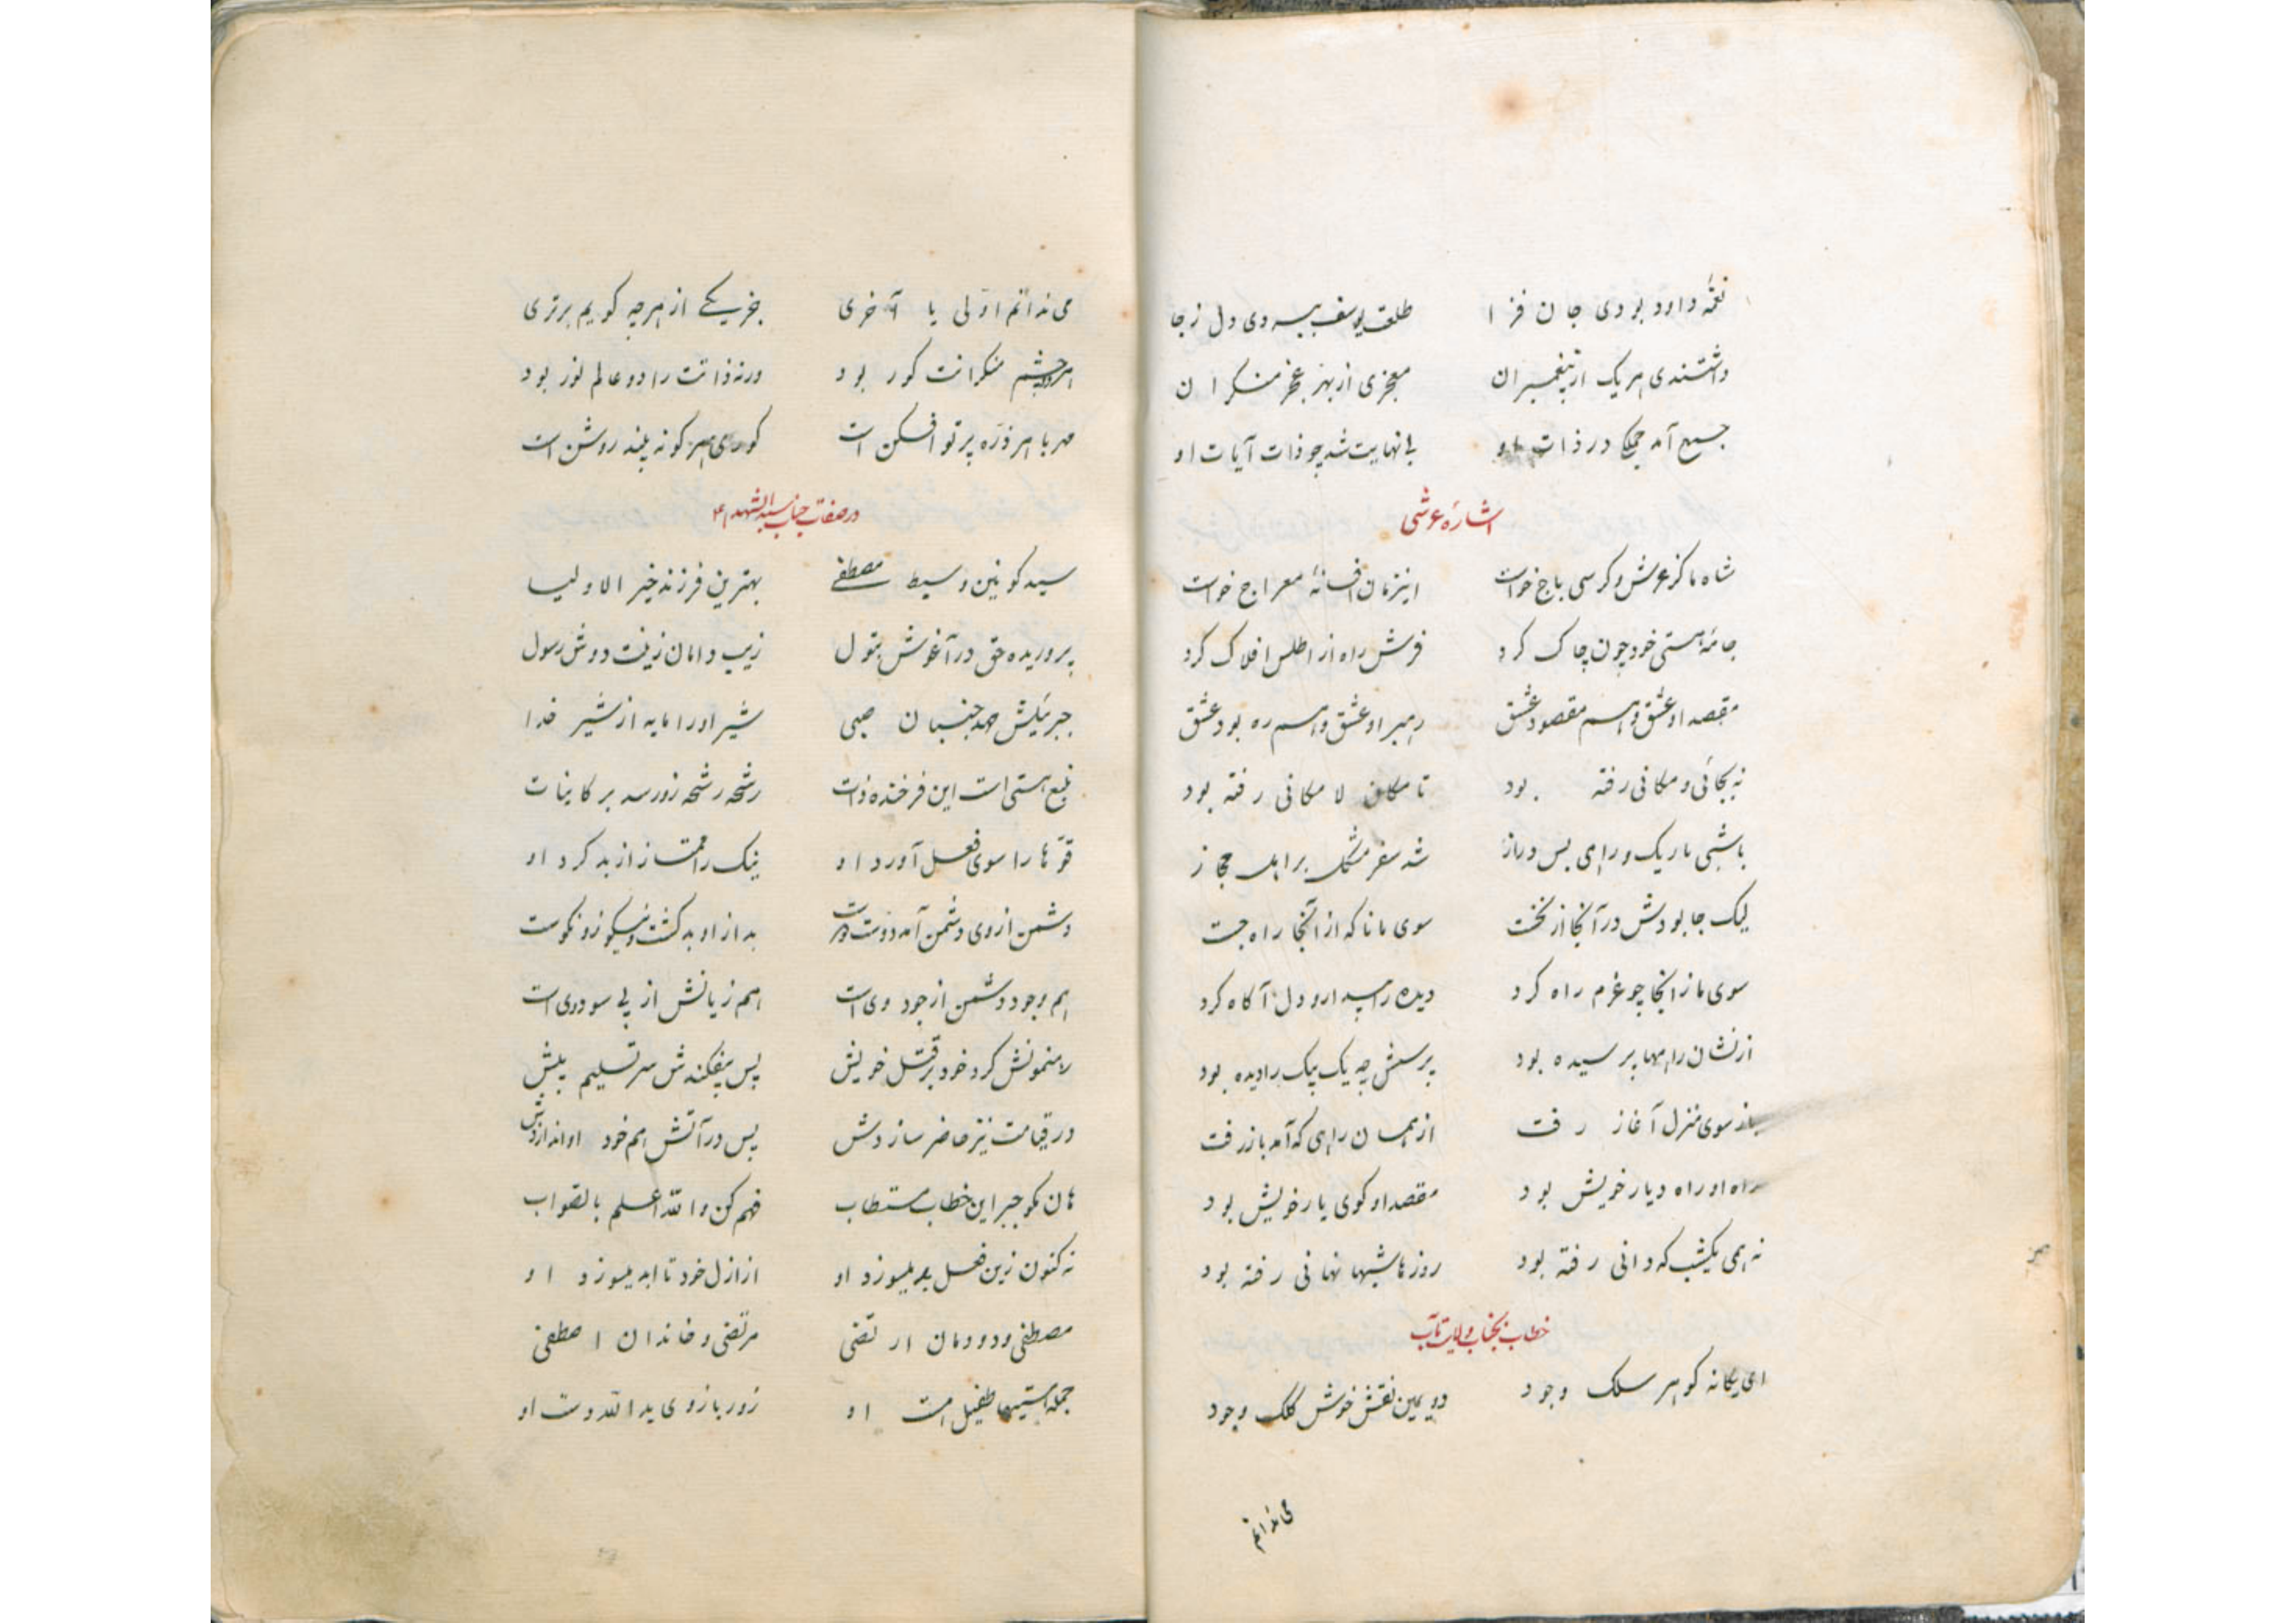 نغمهٔ داود بودی جان فزا طلعت یوسف ببردی دل ز جا
داشتندی هر یک از پیغمبران معجزی از بهر عجز منکران
جمیع آمد جملگی در ذات او بی نهایت شد چو ذات آیات او
اشاره عرشی
شاه ما کز عرش و کرسی باج خواست اینزمان افسانهٔ معراج خواست
جامهٔ هستی خود چون چاک کرد فرش راه از اطلس افلاک کرد
مقصد او عشق و هم مقصود عشق رهبر او عشق و هم ره بود عشق
نه بجائی و مکانی رفته بود تا مکان لا مکانی رفته بود
با شبی تاریک و راهی بس دراز شد سفر مشکل بر اهل مجاز
لیک جا بودش در آنجا از نخست سوی ما تا که از آنجا راه جست
سوی ما زانجا چو عزم راه کرد دیده را بیدار و دل آگاه کرد
از نشان راهها پرسیده بود پرسش چه یک بیک را دیده بود
باز سوی منزل آغاز رفت از همان راهی که آمد باز رفت
راه او راه دیار خویش بود مقصد او کوی یار خویش بود
نه همی یکشب که دانی رفته بود روزها شبها نهانی رفته بود
خطاب بجناب ولایتمآب
ای یگانه گوهر سلک وجود دویمین نقش خوش کلک وجود
می ندانم
می ندانم اوّلی یا آخری جز یکی از هرچه گویم برتری
هر دو چشم منکرانت کور بود ورنه ذاتت را دو عالم نور بود
مهر با هر ذرّه پرتو افکن است کوری هر کو نه بیند روشن است
در صفات جناب سیدالشهداء ع
سید کونین و سبط مصطفی بهترین فرزند خیر الاولیا
پروریده حق در آغوش بتول زیب دامان زینت دوش رسول
جبرئیلش مهد جنبان صبی شیر او را مایه از شیر خدا
منبع هستی است این فرخنده ذات رشحه رشحه زو رسد بر کاینات
قوّتها را سوی فعل آورد او نیک را ممتاز از بد کرد او
دشمن از وی دشمن آمد دوست دوست بد از او بد گشت و نیکو زو نکوست
هم وجود دشمن از جود وی است هم زیانش از پی سود وی است
رهنمونش کرد خود بر قتل خویش پس بیفکندش سر تسلیم پیش
در قیامت نیز حاضر سازدش پس در آتش هم خود او اندازدش
هان مگو جبر این خطاب مستطاب فهم کن والله اعلم بالصواب
نه کنون زین فعل بد میسوزد او از ازل خود تا ابد میسوزد او
مصطفی و دودمان ارتضی مرتضی و خاندان اصطفی
جمله هستیها طفیل هست او زور بازوی یدالله دست او